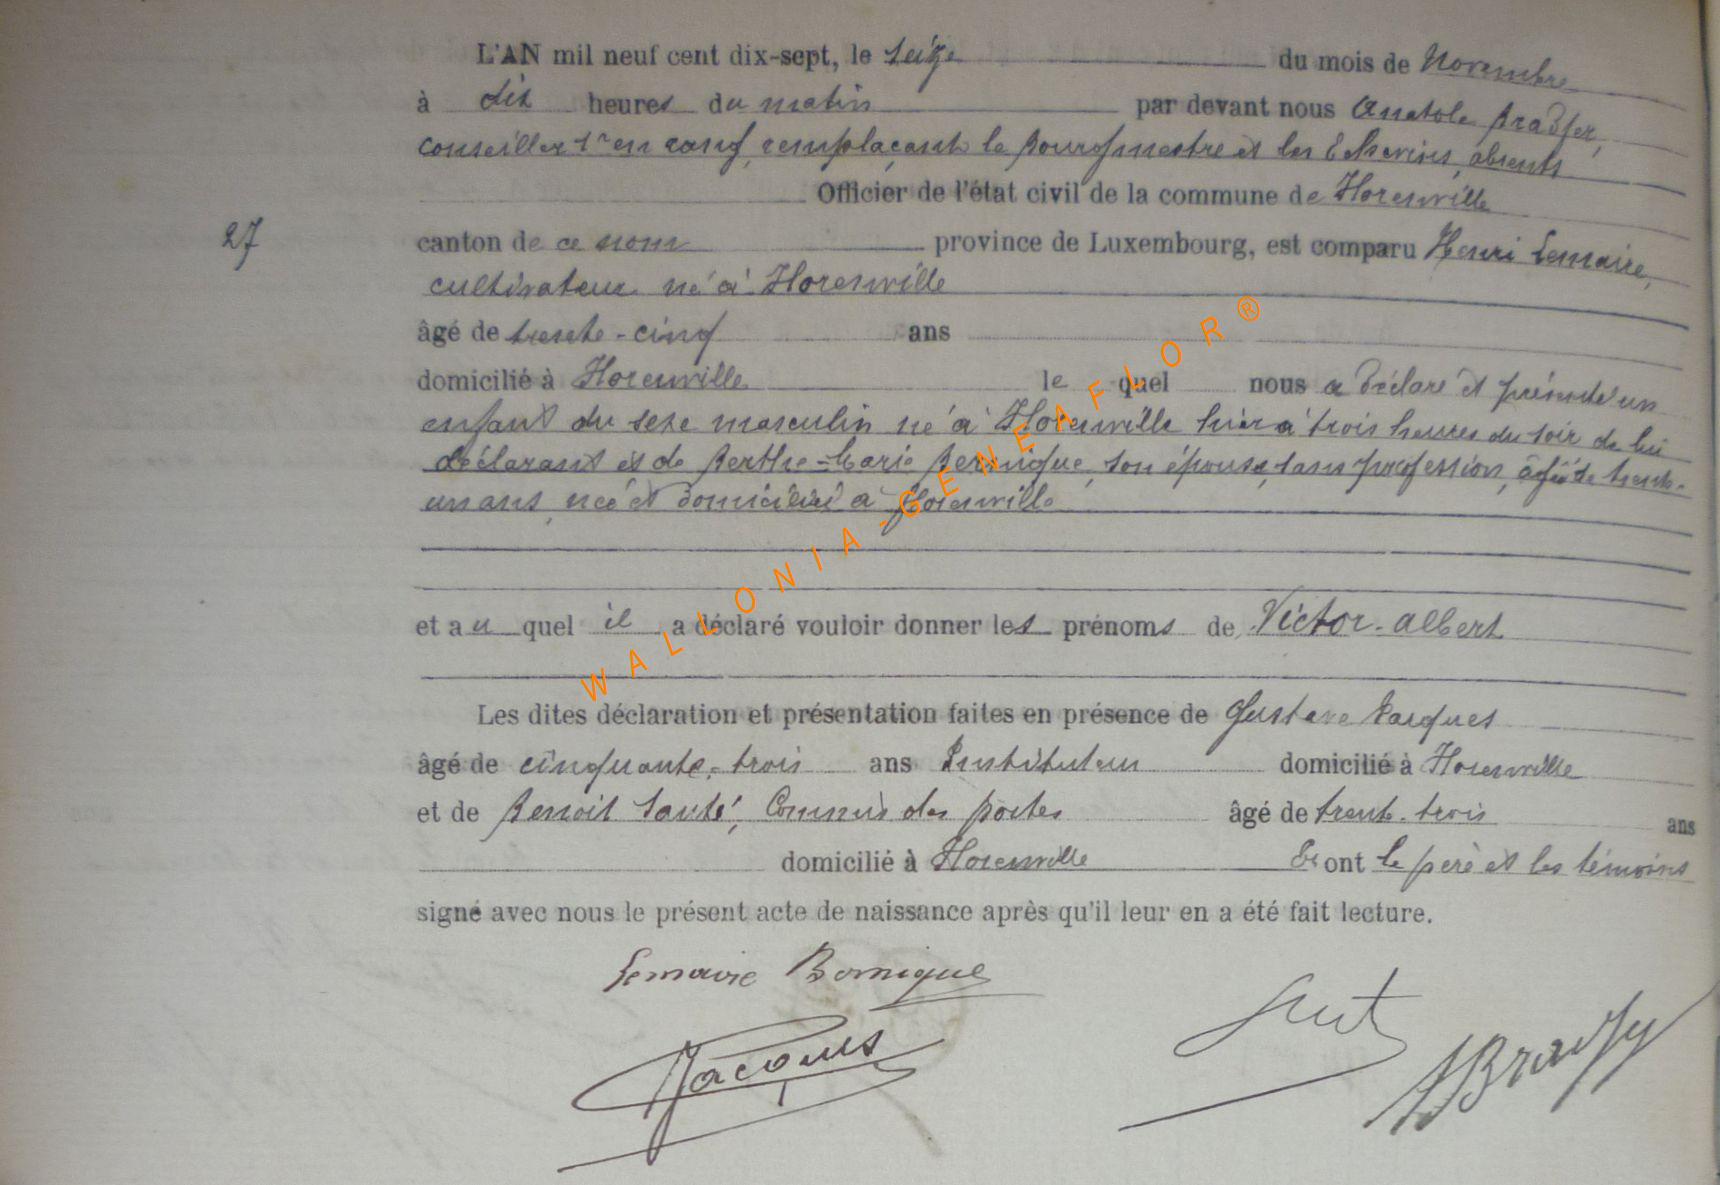 L'AN mil neuf cent dix-sept, le seize du mois de Novembre
à dix heures du matin par devant nous Anatole Bradfer,
conseiller 1er en rang, remplaçant le Bourgmestre et les Echevins, absents
Officier de l'état civil de la commune de Florenville
27
canton de ce nom province de Luxembourg, est comparu Henri Lemaire,
cultivateur né à Florenville
âgé de trente-cinq ans
domicilié à Florenville lequel nous a déclaré et présenté un
enfant du sexe masculin né à Florenville hier à trois heures du soir de lui
déclarant et de Berthe-Marie Bernique, son épouse, sans profession, âgée de trente-
un ans, née et domiciliée à Florenville
et auquel il a déclaré vouloir donner les prénoms de Victor-Albert
Les dites déclaration et présentation faites en présence de Gustave Jacques
âgé de cinquante-trois ans Instituteur domicilié à Florenville
et de Benoit Santé, Commis des postes âgé de trente-trois ans
domicilié à Florenville Et ont le père et les témoins
signé avec nous le présent acte de naissance après qu'il leur en a été fait lecture.
Lemaire Bornique
Jacques
ABradfer
WALLONIA-GENEAFLOR®